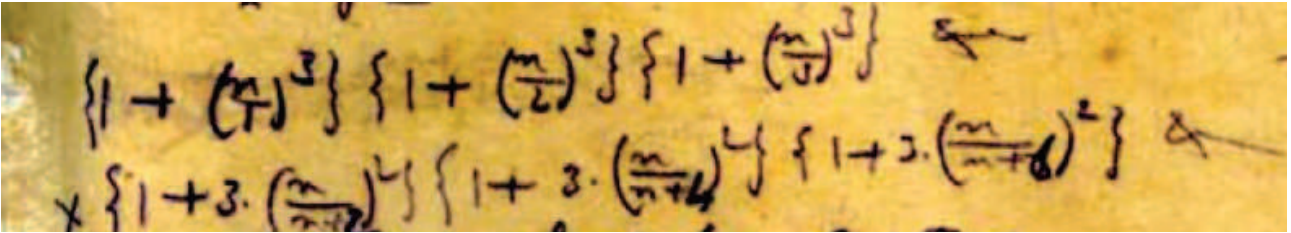 {1 + (n/1)³} {1 + (n/2)³} {1 + (n/3)³} &c
× {1 + 3. (n/(n+2))²} {1 + 3. (n/(n+4))²} {1 + 3. (n/(n+6))²} &c